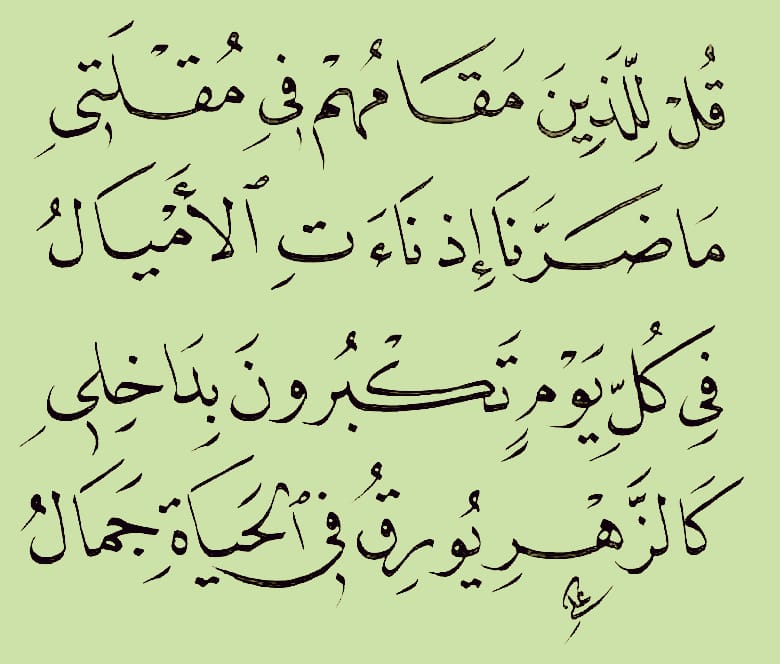 قُلْ لِلَّذِينَ مَقَامُهُمْ فِي مُقْلَتِي
مَا ضَرَّنَا إِذ نَاءَتِ ٱلأَمْيَالُ
فِي كُلِّ يَوْمٍ تَكْبُرونَ بِدَاخِلِي
كَالزَّهْرِ يُورِقُ فِي ٱلحَيَاةِ جَمَالُ
علي